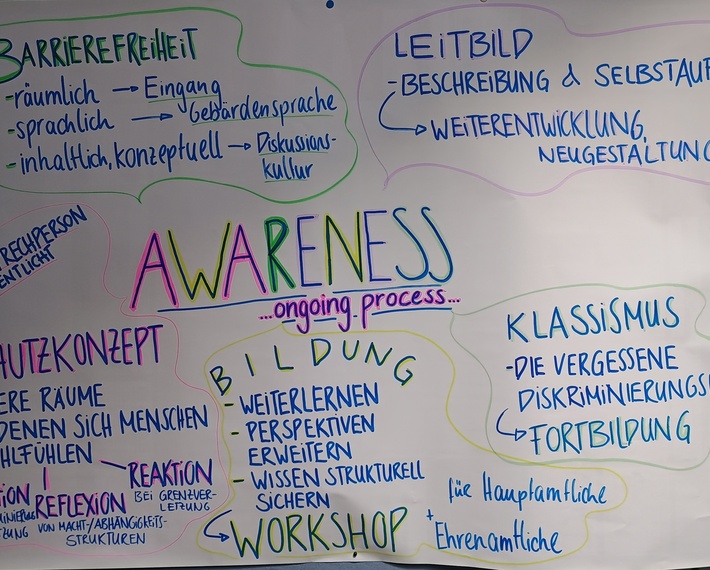 BARRIEREFREIHEIT
-räumlich → Eingang
-sprachlich → Gebärdensprache
-inhaltlich, konzeptuell → Diskussions-
kultur
LEITBILD
-BESCHREIBUNG & SELBSTAUF
→ WEITERENTWICKLUNG,
NEUGESTALTUNG
RECHPERSON
ENTLICHT
AWARENESS
...ongoing process...
HUTZKONZEPT
ERE RÄUME
DENEN SICH MENSCHEN
HLFÜHLEN
REAKTION
BEI GRENZVER-
LETZUNG
ION REFLEXION
VON MACHT-/ABHÄNGIGKEITS-
STRUKTUREN
BILDUNG
-WEITERLERNEN
-PERSPEKTIVEN
ERWEITERN
-WISSEN STRUKTURELL
SICHERN
→ WORKSHOP
für Hauptamtliche
+ Ehrenamtliche
KLASSISMUS
-DIE VERGESSENE
DISKRIMINIERUNGS
→ FORTBILDUNG